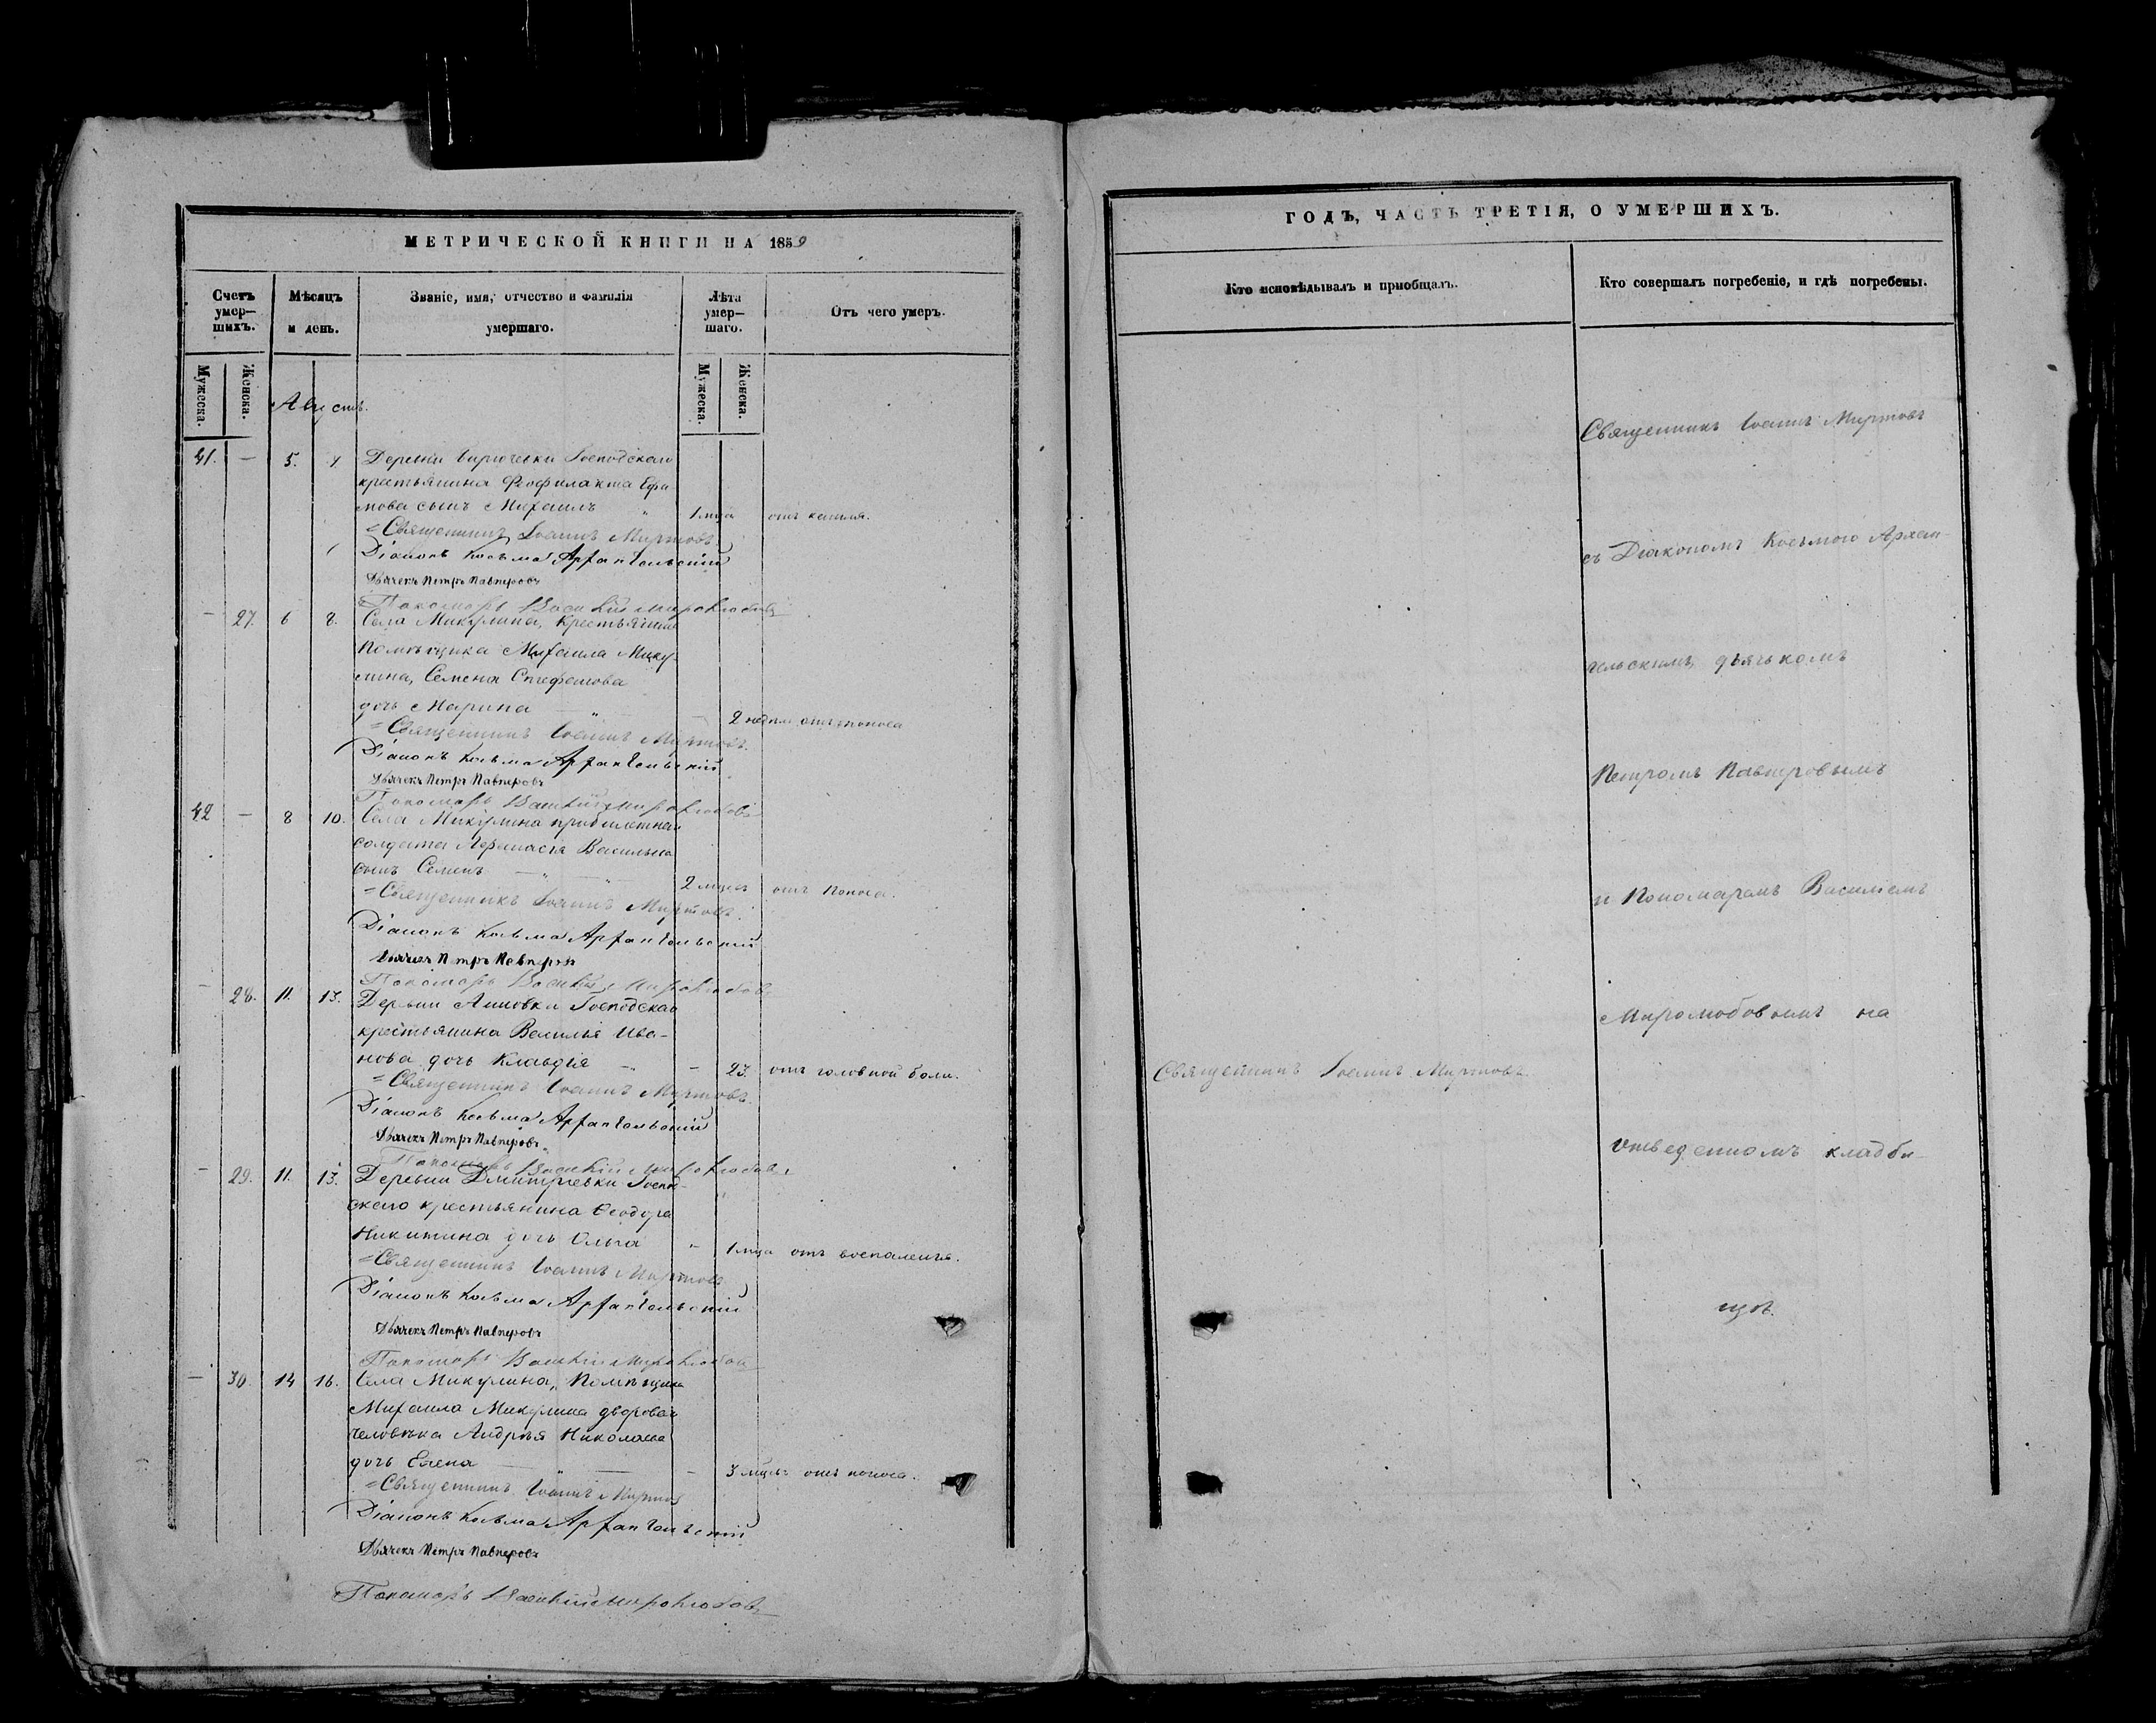 МЕТРИЧЕСКОЙ КНИГИ НА 1859
Счетъ умер-шихъ.
Мѣсяцъ и день.
Званіе, имя, отчество и фамилія умершаго.
Лѣта умер-шаго.
Отъ чего умеръ.
Мужеска.
Женска.
Мужеска.
Женска.
Августъ.
41. — 5. 7. Деревни Господскаго
крестьянина Феофилакта Ефи
мова сынъ Михаилъ 1 мца отъ кашля.
Священникъ Іоаннъ Миртовъ.
Діаконъ Косьма Архангельскій
Дьячекъ Петръ Павперовъ
Пономарь Василій Миролюбовъ
— 27. 6 8. Села Микулина, крестьянина
Помѣщика Михаила Мику-
лина, Семена Стефанова
дочь Марина — 2 недѣли отъ поноса
Священникъ Іоаннъ Миртовъ.
Діаконъ Косьма Архангельскій
Дьячекъ Петръ Павперовъ
Пономарь Василій Миролюбовъ
42 — 8 10. Села Микулина
солдата Василь
сынъ Семенъ 2 мцевъ отъ поноса.
Священникъ Іоаннъ Миртовъ.
Діаконъ Косьма Архангельскій
Дьячекъ Петръ Павперовъ
Пономарь Василій Миролюбовъ
— 28. 11. 13. Деревни Господскаго
крестьянина Василья Ива-
нова дочь Клавдія — 23. отъ головной боли.
Священникъ Іоаннъ Миртовъ.
Діаконъ Косьма Архангельскій
Дьячекъ Петръ Павперовъ
Пономарь Василій Миролюбовъ
— 29. 11. 13. Деревни Дмитріевки Господ-
скаго крестьянина Ѳеодора
Никитина дочь Ольга — 1 мца отъ воспаленія.
Священникъ Іоаннъ Миртовъ
Діаконъ Косьма Архангельскій
Дьячекъ Петръ Павперовъ
Пономарь Василій Миролюбовъ
— 30. 14 16. Села Микулина, Помѣщика
Михаила Микулина дворова
человѣка Андрея Николаева
дочь Елена — 3 мцевъ отъ поноса.
Священникъ Іоаннъ Миртов
Діаконъ Косьма Архангельскій
Дьячекъ Петръ Павперовъ
Пономарь Василій Миролюбовъ
ГОДЪ, ЧАСТЬ ТРЕТІЯ, О УМЕРШИХЪ.
Кто исповѣдывалъ и пріобщалъ.
Кто совершалъ погребеніе, и гдѣ погребены.
Священникъ Іоаннъ Миртовъ
съ Діакономъ Косьмою Архан-
гельскимъ, дьячькомъ
Петромъ Павперовымъ
и Пономаремъ Василіемъ
Миролюбовымъ на
Священникъ Іоаннъ Миртовъ.
отведенномъ кладби-
щѣ.